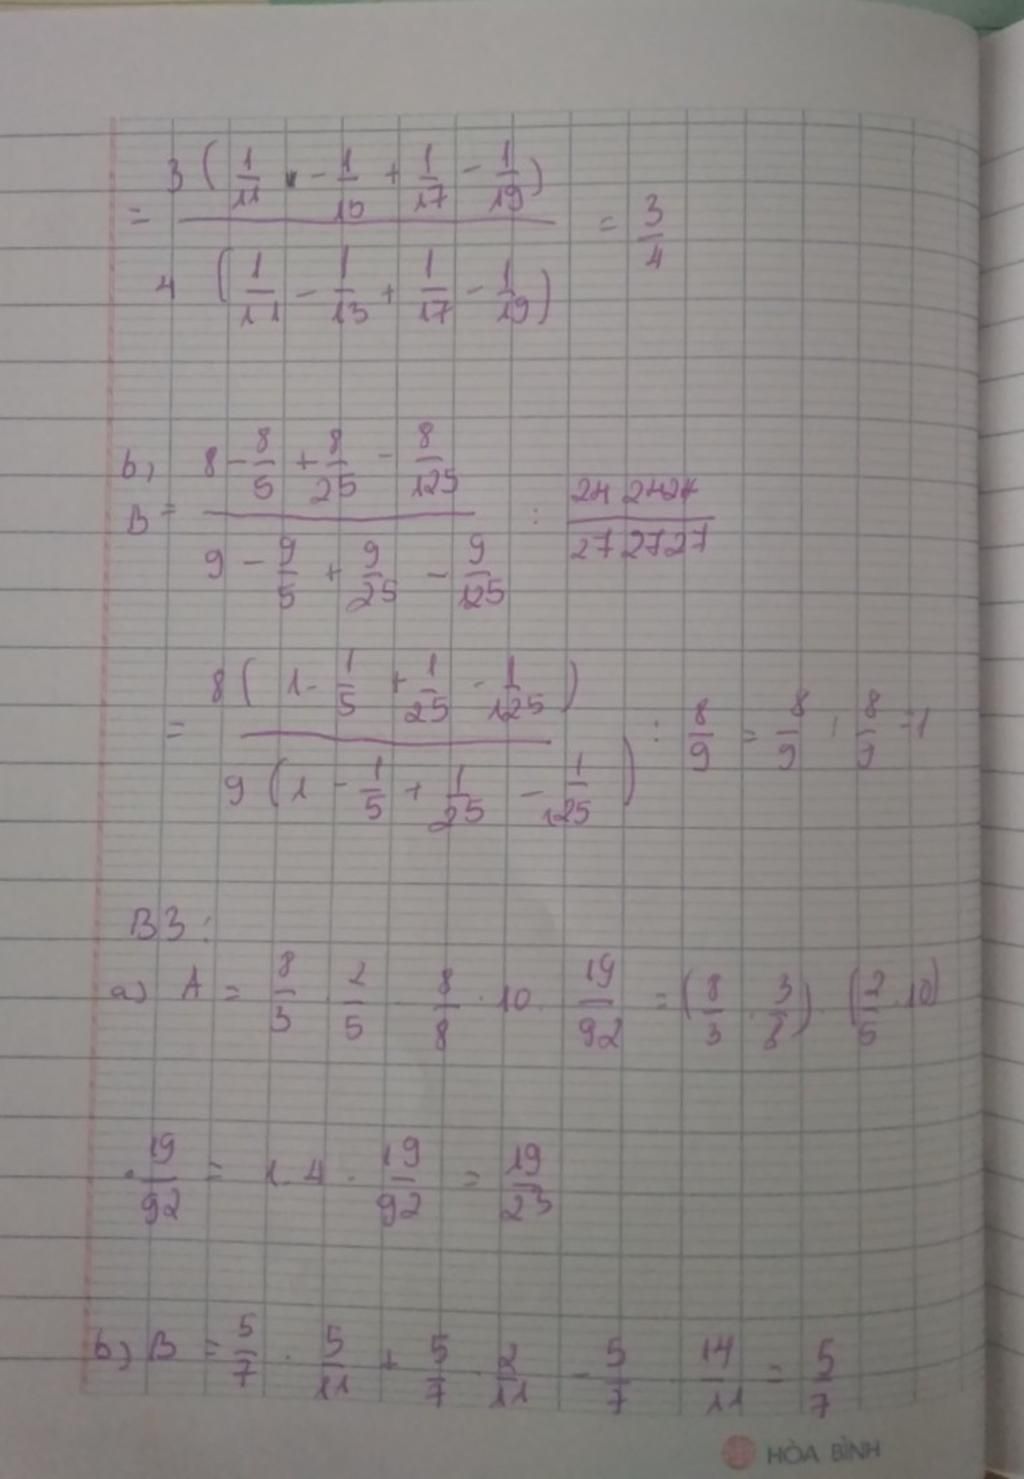 = 3 ( 1/11 - 1/13 + 1/17 - 1/19 ) / 4 ( 1/11 - 1/13 + 1/17 - 1/19 ) = 3/4
b, B = 8 - 8/5 + 8/25 - 8/125 / 9 - 9/5 + 9/25 - 9/125 : 242424/272727
= 8 ( 1 - 1/5 + 1/25 - 1/125 ) / 9 ( 1 - 1/5 + 1/25 - 1/125 ) : 8/9 = 8/9 : 8/9 = 1
B3 :
a) A = 8/3 . 2/5 . 8/8 . 10 . 19/92 = ( 8/3 . 3/8 ) . ( 2/5 . 10 )
. 19/92 = 1 . 4 . 19/92 = 19/23
b) B = 5/7 . 5/11 + 5/7 . 2/11 - 5/7 . 14/11 = 5/7
HÒA BÌNH